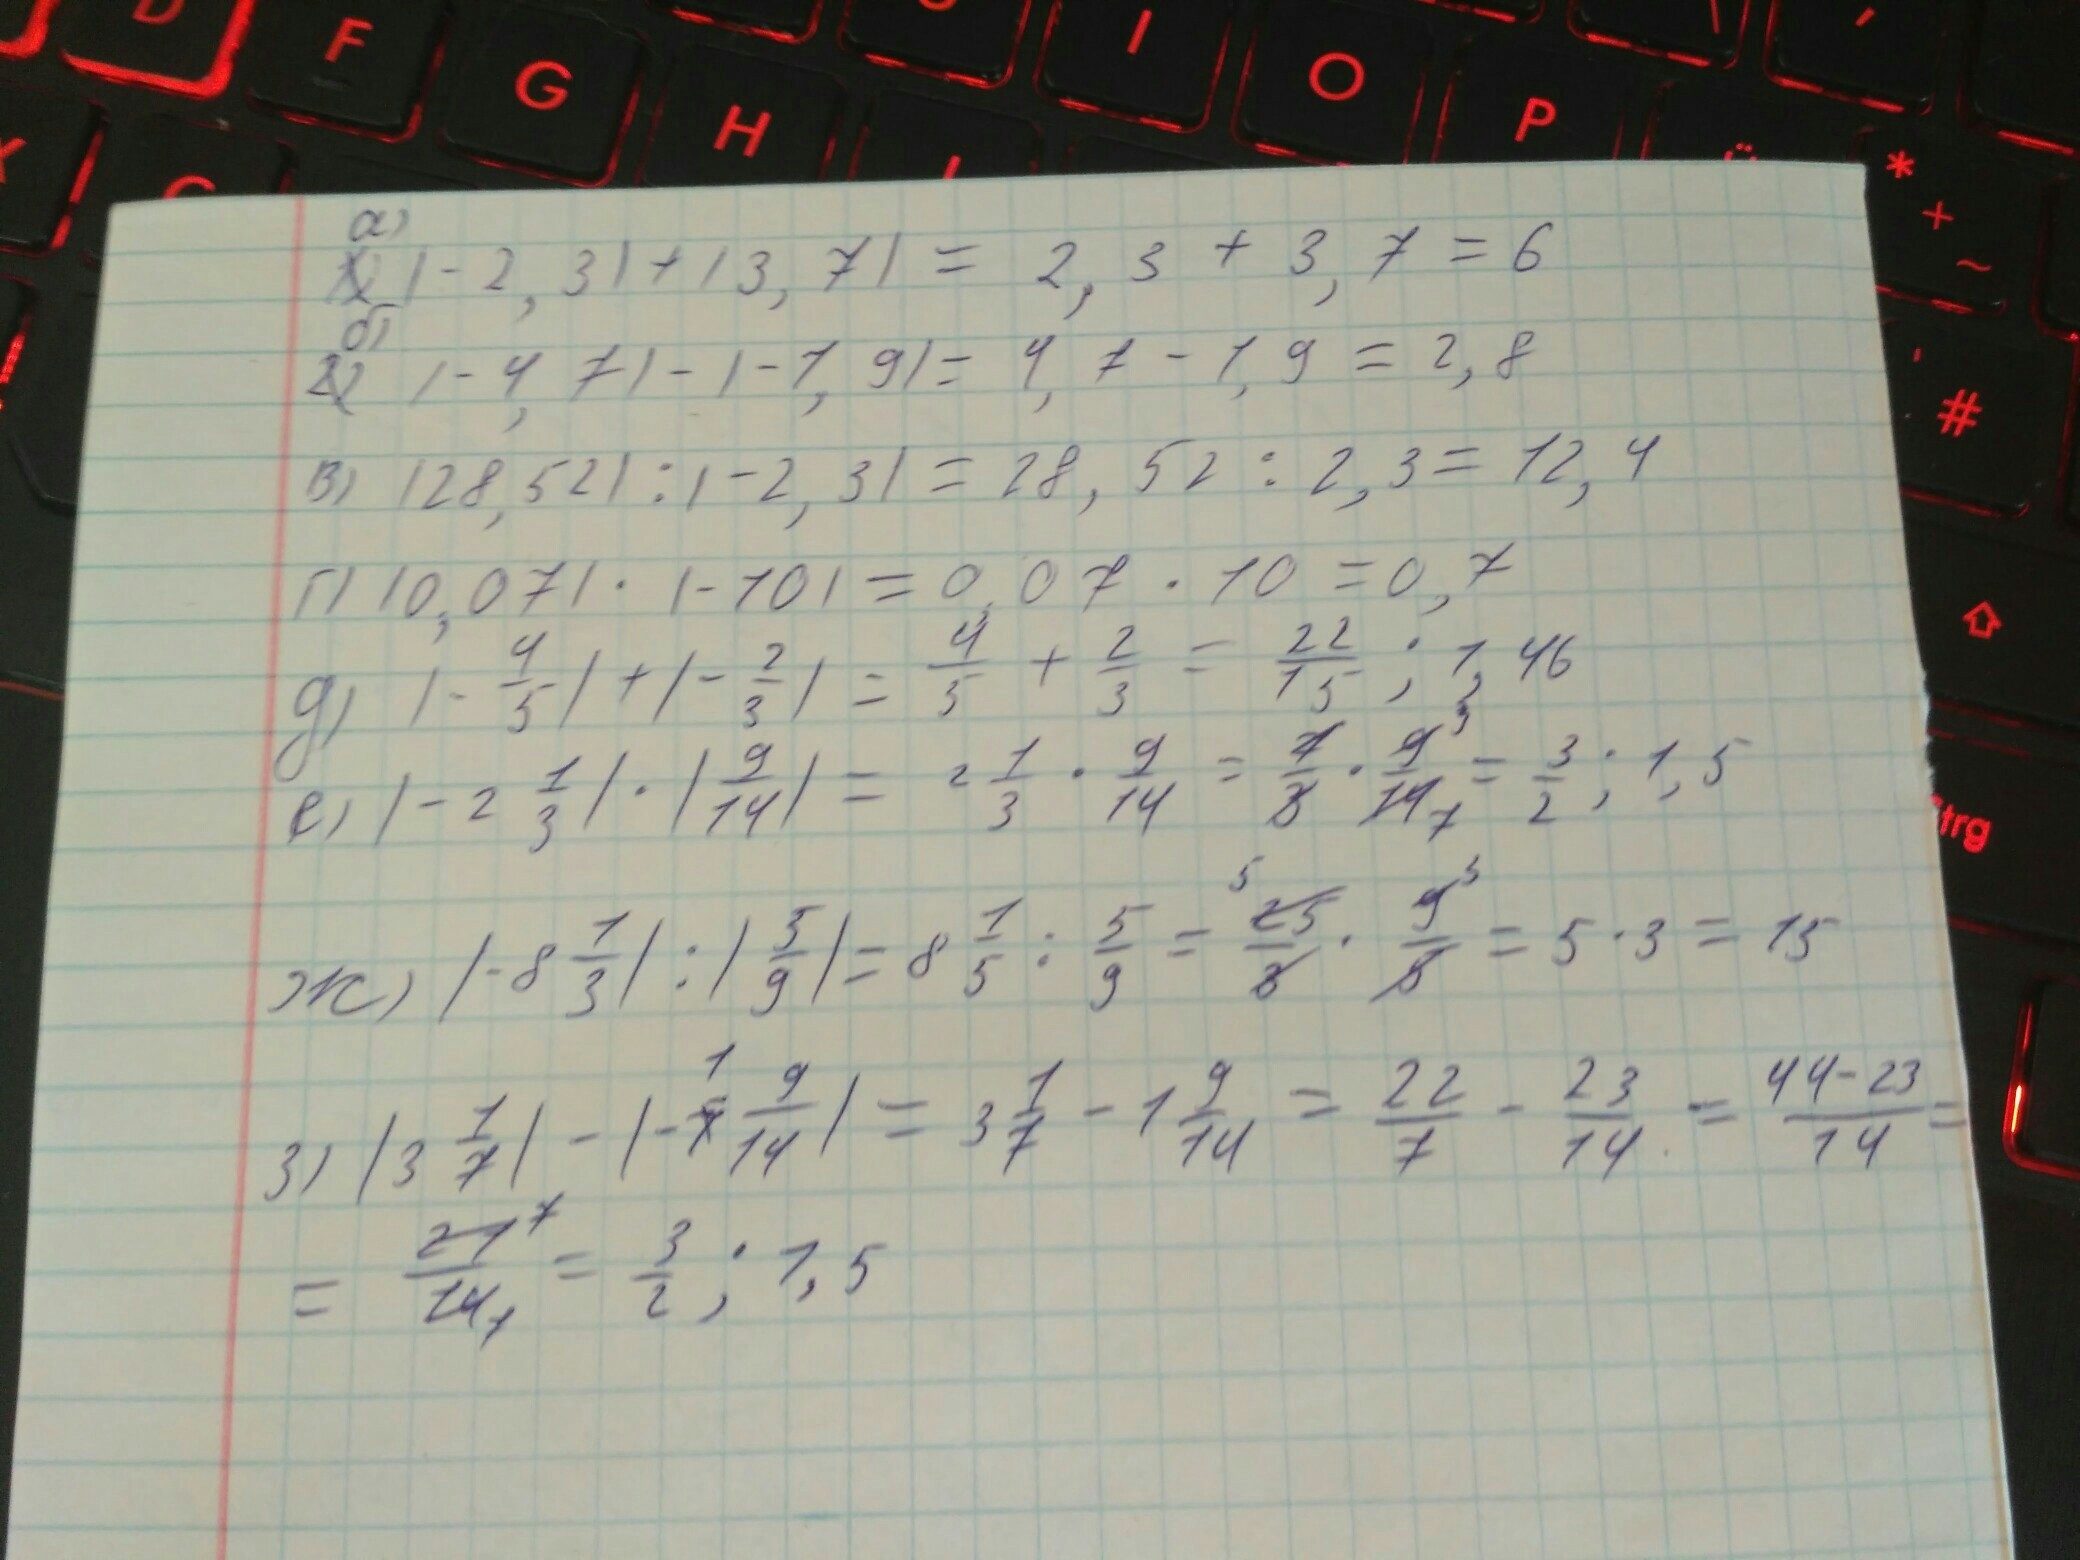 D F G H I O P Ü * + ~
X C ' #
Strg
а)
|-2,3|+|3,7| = 2,3 + 3,7 = 6
б)
2) |-4,7|-|-1,9|= 4,7-1,9 = 2,8
в) |28,52|:|-2,3| = 28,52 : 2,3 = 12,4
г) |0,07| · |-10| = 0,07 · 10 = 0,7
д) |-4/5|+|-2/3| = 4/5 + 2/3 = 22/15 ; 1,46
е) |-2 1/3| · |9/14| = 2 1/3 · 9/14 = 7/3 · 9/14 = 3/2 ; 1,5
ж) |-8 1/3| : |5/9| = 8 1/5 : 5/9 = 25/3 · 9/5 = 5 · 3 = 15
з) |3 1/7| - |-1 9/14| = 3 1/7 - 1 9/14 = 22/7 - 23/14 = 44-23/14 =
= 21/14 = 3/2 ; 1,5